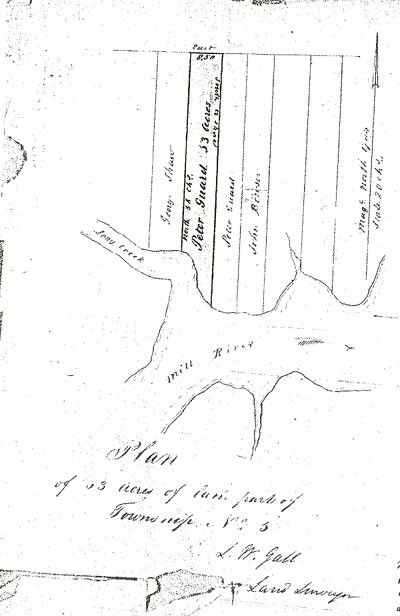 East
8,50
Geo. Shaw
North 54 chs.
Peter Guard 53 Acres
Peter Guard
John
Magc. North
Scale 20 chs.
Long Creek
Mill River
Plan
of 53 acres of land part of
Township No. 3
L. W. Gall
Land Surveyor